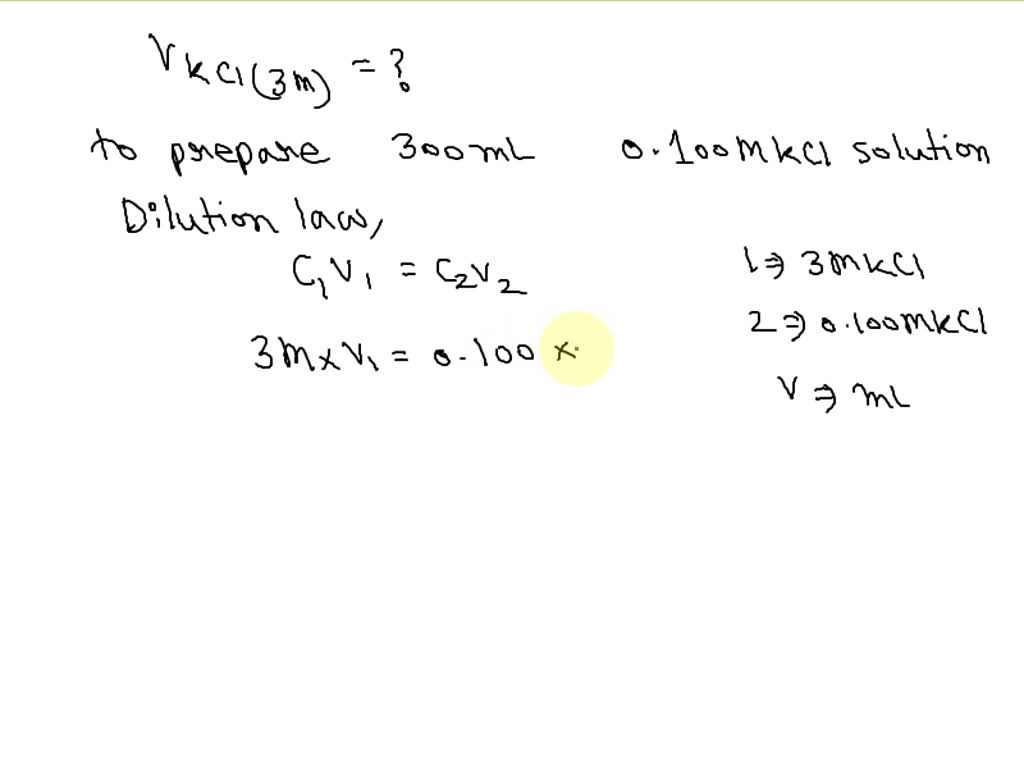 V KCl (3M) = ?
to prepare 300mL 0.100M KCl solution
Dilution law,
C₁V₁ = C₂V₂
3M × V₁ = 0.100 ×
1 ⇒ 3M KCl
2 ⇒ 0.100M KCl
V ⇒ mL